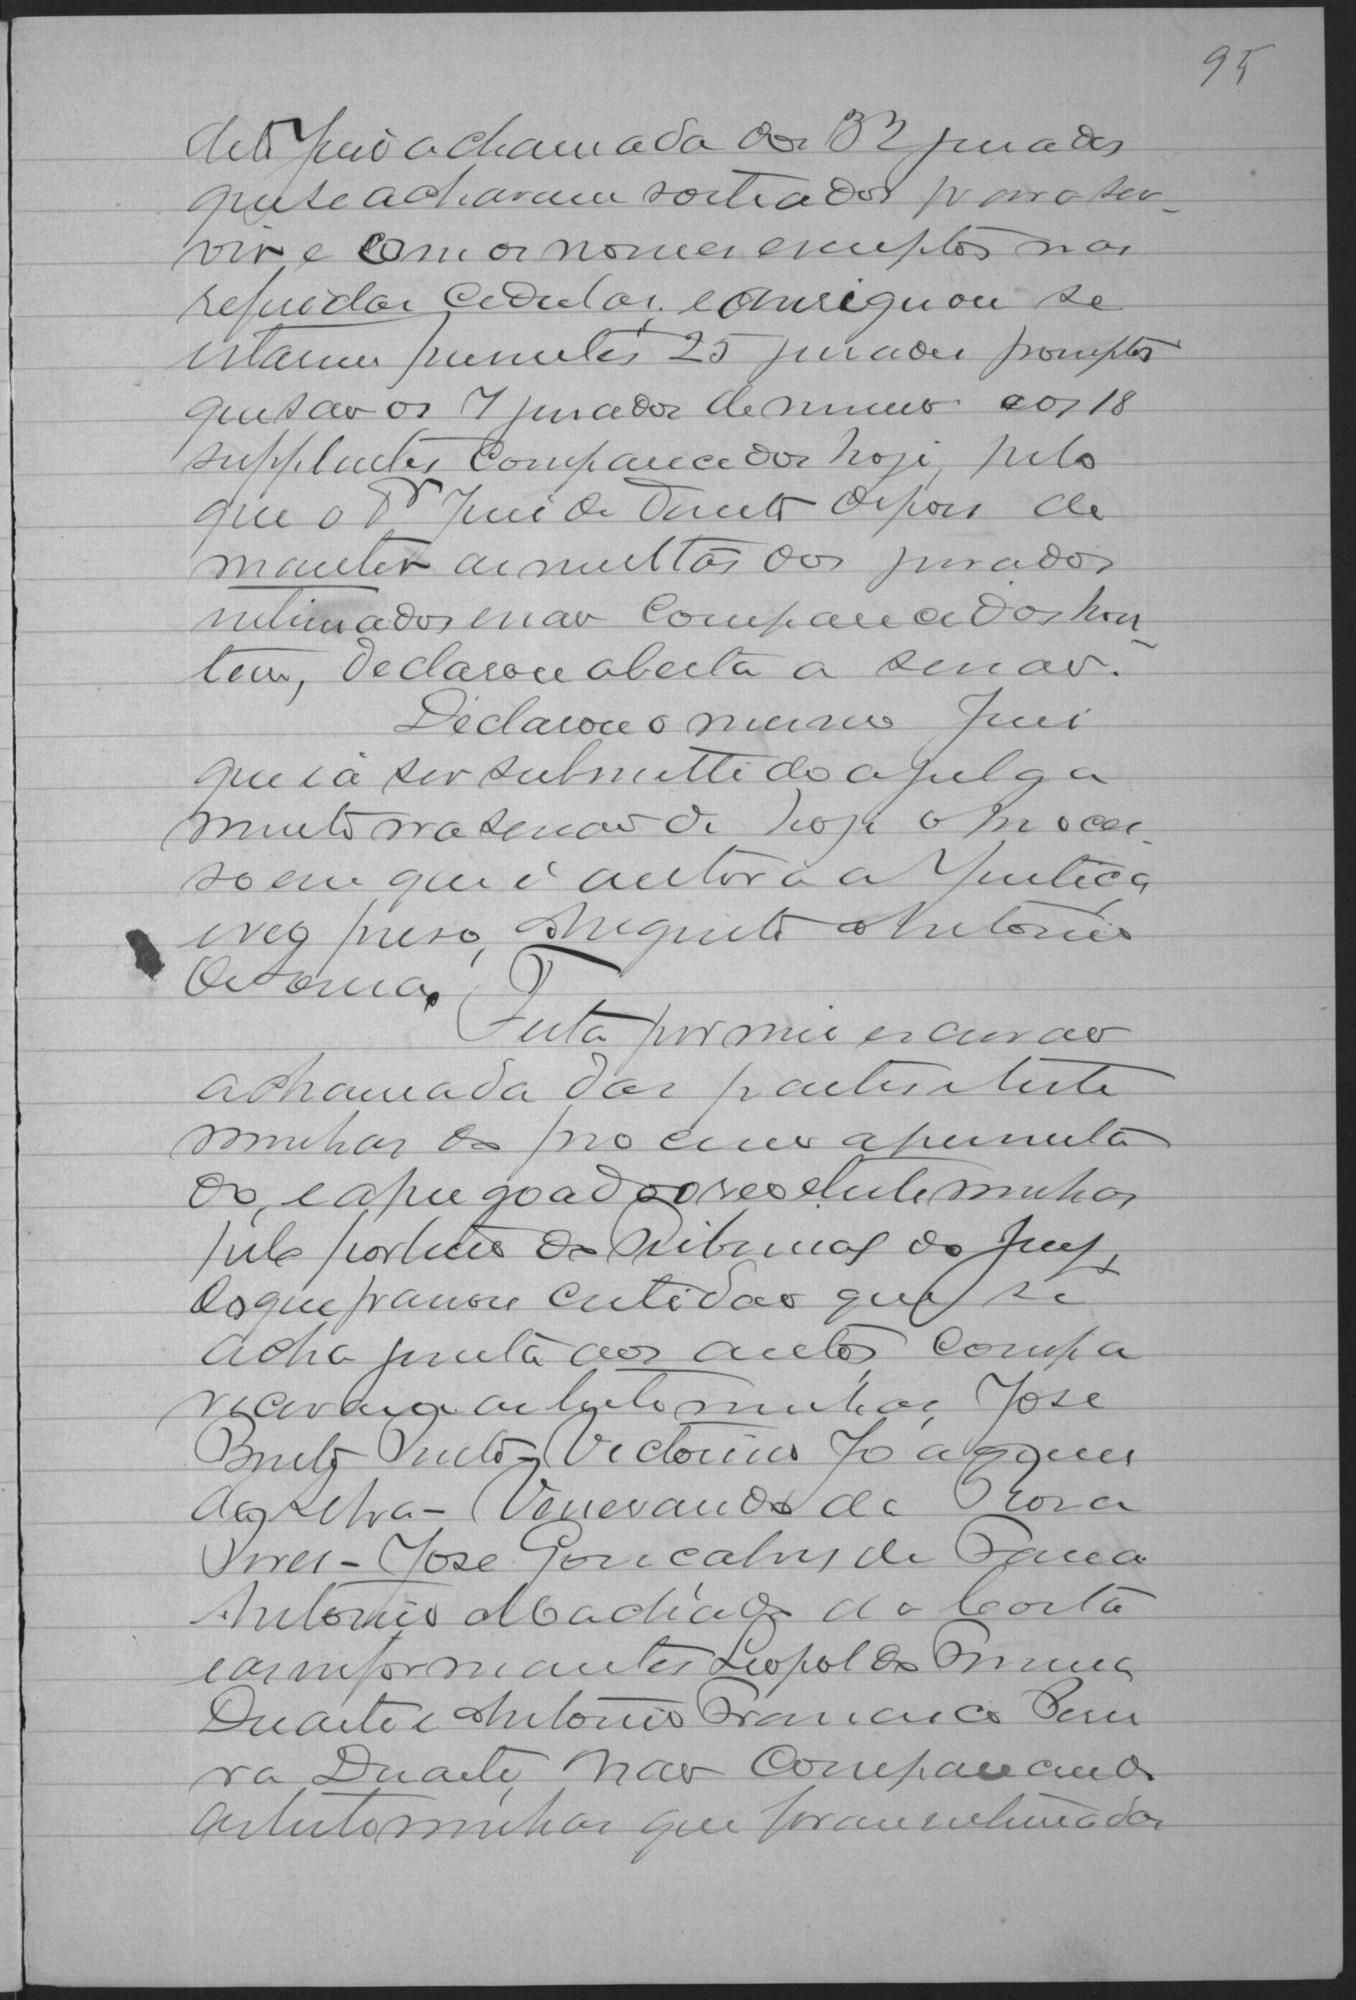 95
dito Juiz a chamada dos 32 jurados
que se acharam sorteados para ser-
vir e com os nomes escriptos nas
referidas cedulas, e consignou se
estarem presentes 25 jurados promptos
que sao os 7 jurados de numero e os 18
supplentes comparecidos hoje, pelo
que o Dr Juiz de Direito depois de
manter as multas dos jurados
intimados e nao comparecidos hon-
tem, declarou aberta a sessao.
Declarou o mesmo Juiz
que ia ser submettido a julga
mento na sessao de hoje o proces-
so em que é autora a Justiça
e reo preso, Augusto Antonio
de Souza.
Feita por mim escrivao
a chamada das partes e teste
munhas do processo apresenta
do, e apregoado o reo e testemunhas
pelo porteiro do Tribunal do Jury,
do que passou certidao que se
acha junta aos autos, compa
receram as testemunhas, José
Bento Pinto, Victorino Joaquim
da Silva - Venerando da Rosa
Pires - José Gonçalves de Faria
Antonio Machado da Costa
e os informantes Leopoldo Pereira
Duarte e Antonio Francisco Perei
ra Duarte, nao comparecendo
as testemunhas que foram intimadas